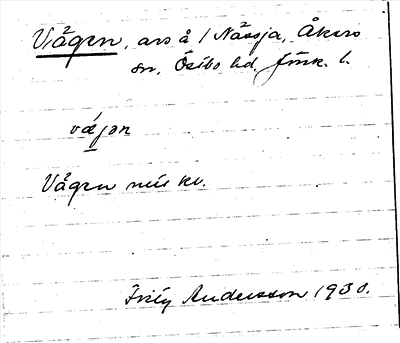 Vågen, ars å / Nässja, Åkers
sn, Östbo hd, Jönk. l.
vǽjən
Vågen
Andersson 1930.